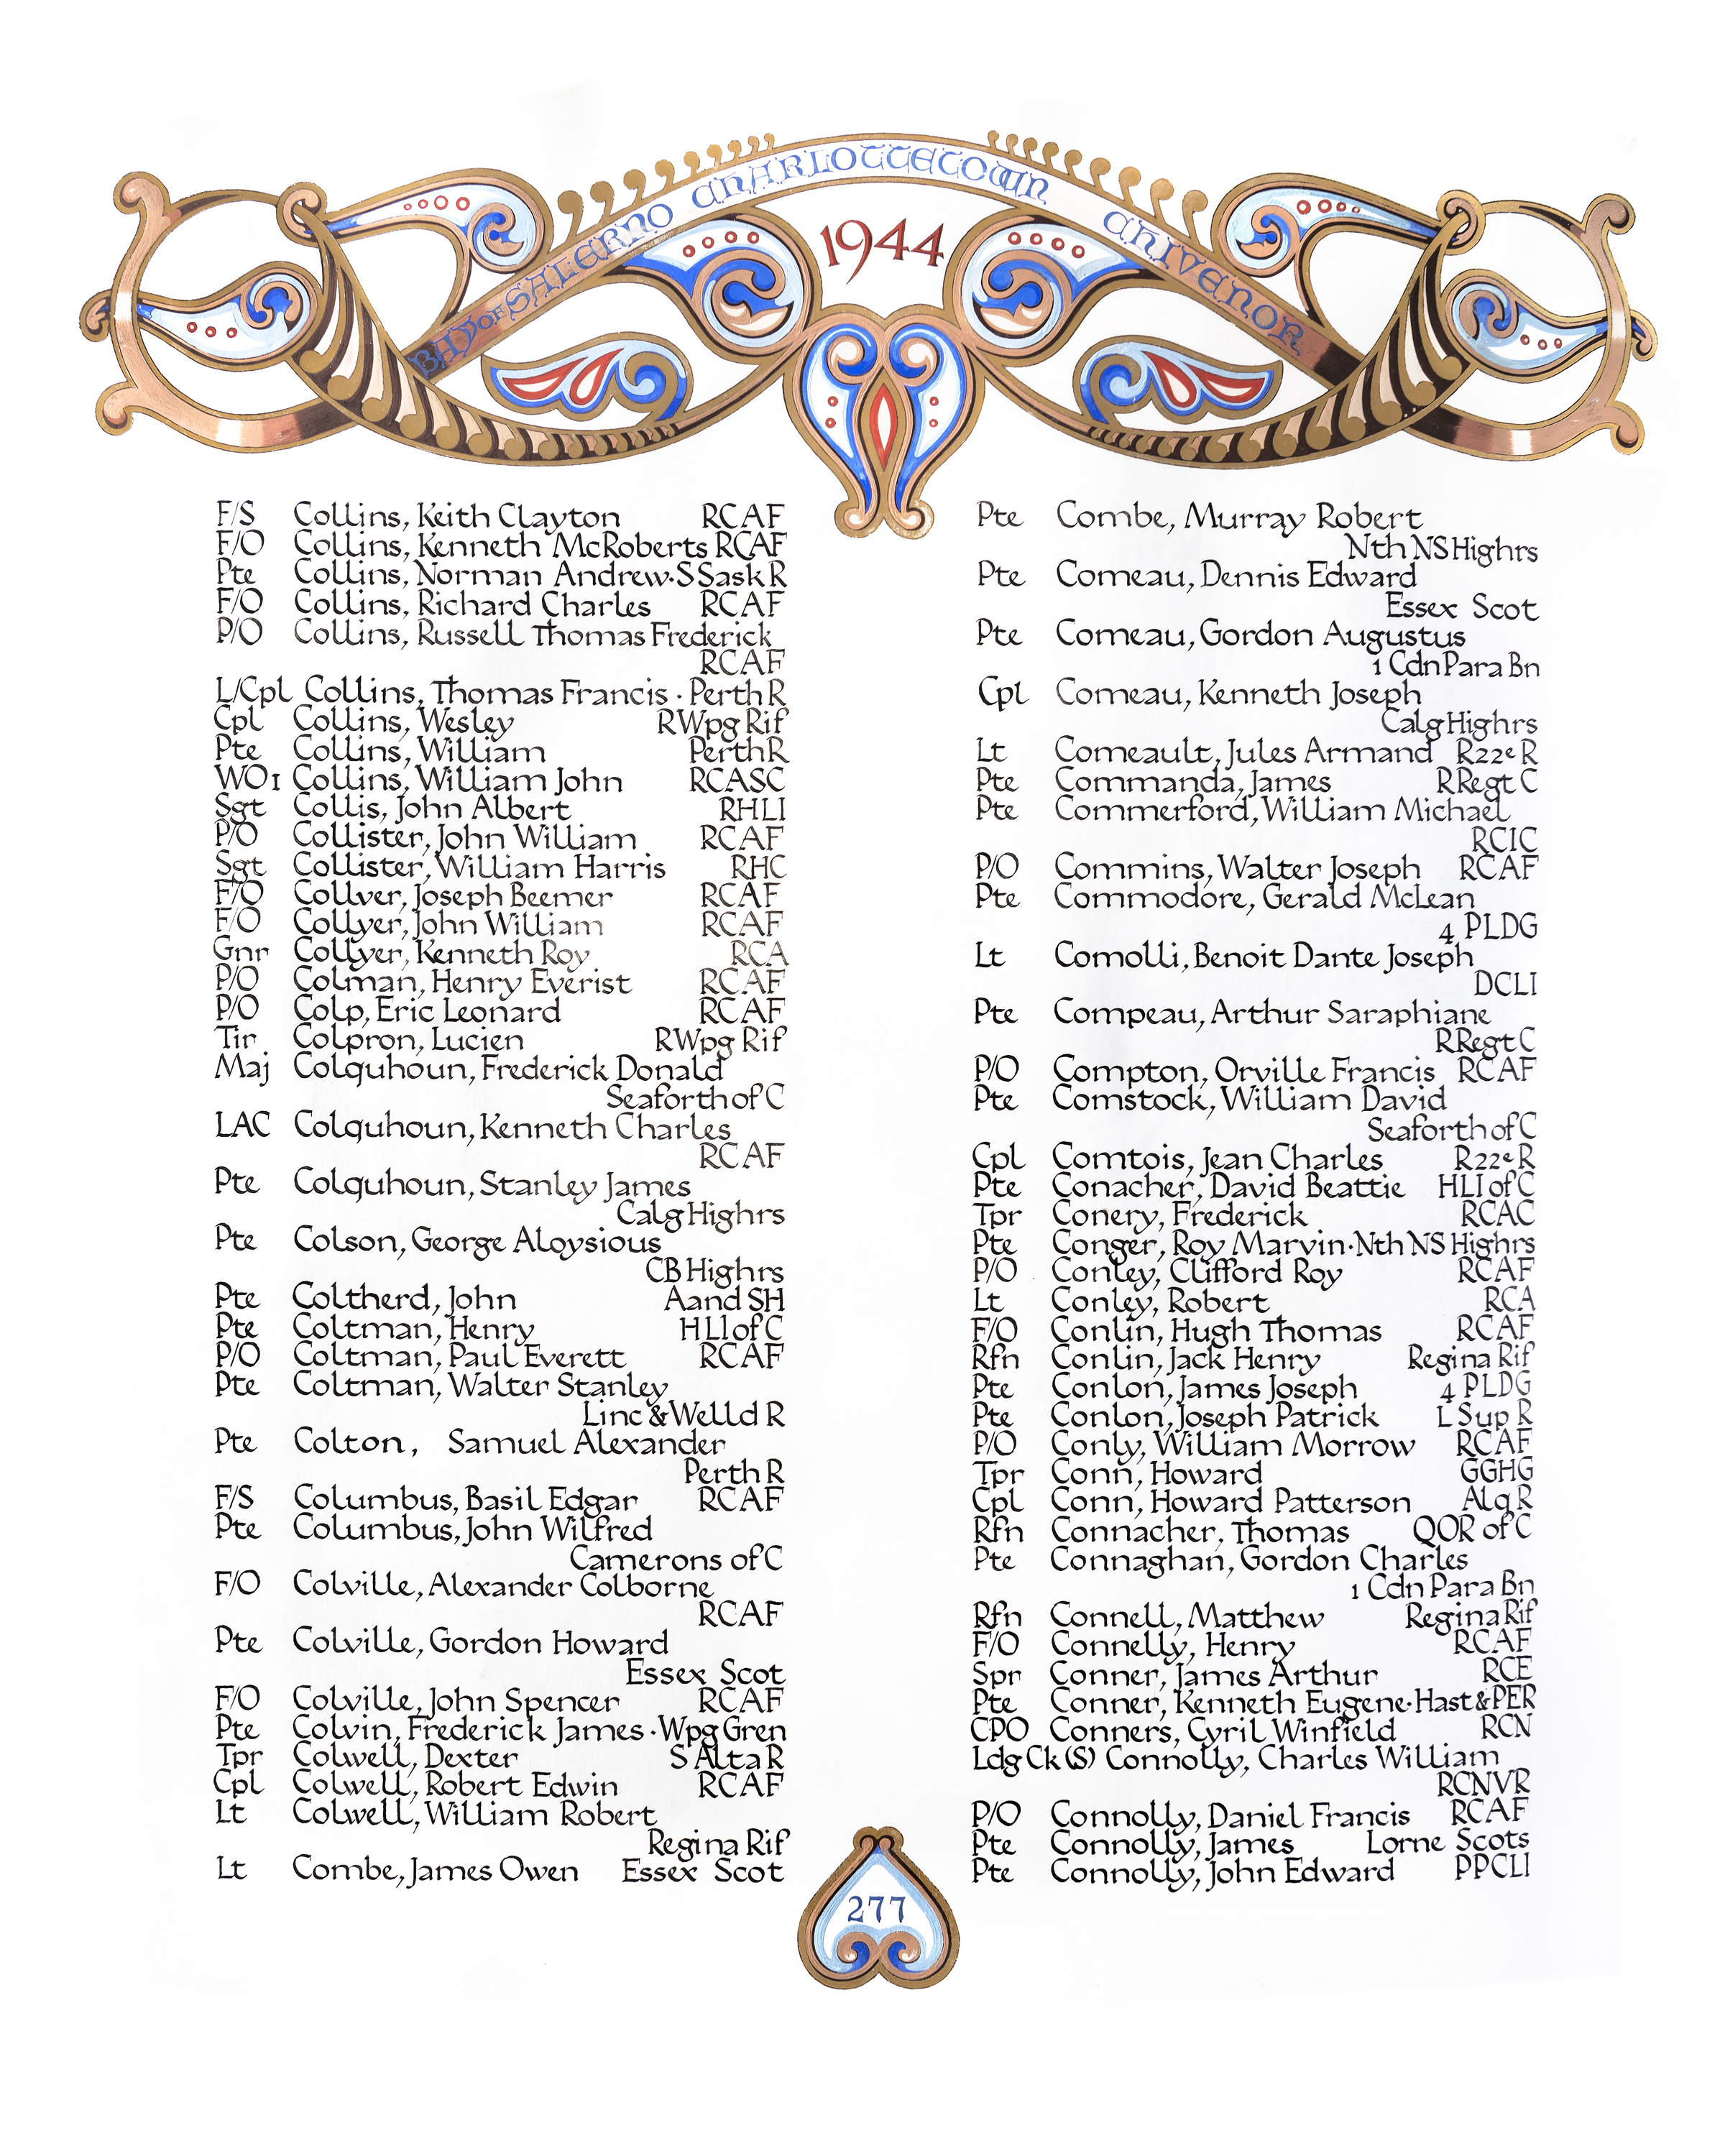 BAY OF SALERNO CHARLOTTETOWN CHIVENOR
1944
F/S Collins, Keith Clayton RCAF
F/O Collins, Kenneth McRoberts RCAF
Pte Collins, Norman Andrew·S Sask R
F/O Collins, Richard Charles RCAF
P/O Collins, Russell Thomas Frederick
RCAF
L/Cpl Collins, Thomas Francis · Perth R
Cpl Collins, Wesley R Wpg Rif
Pte Collins, William Perth R
WO1 Collins, William John RCASC
Sgt Collis, John Albert RHLI
P/O Collister, John William RCAF
Sgt Collister, William Harris RHC
F/O Collver, Joseph Beemer RCAF
F/O Collyer, John William RCAF
Gnr Collyer, Kenneth Roy RCA
P/O Colman, Henry Everist RCAF
P/O Colp, Eric Leonard RCAF
Tir Colpron, Lucien R Wpg Rif
Maj Colquhoun, Frederick Donald
Seaforth of C
LAC Colquhoun, Kenneth Charles
RCAF
Pte Colquhoun, Stanley James
Calg Highrs
Pte Colson, George Aloysious
CB Highrs
Pte Coltherd, John A and SH
Pte Coltman, Henry HLI of C
P/O Coltman, Paul Everett RCAF
Pte Coltman, Walter Stanley
Linc & Welld R
Pte Colton, Samuel Alexander
Perth R
F/S Columbus, Basil Edgar RCAF
Pte Columbus, John Wilfred
Camerons of C
F/O Colville, Alexander Colborne
RCAF
Pte Colville, Gordon Howard
Essex Scot
F/O Colville, John Spencer RCAF
Pte Colvin, Frederick James · Wpg Gren
Tpr Colwell, Dexter S Alta R
Cpl Colwell, Robert Edwin RCAF
Lt Colwell, William Robert
Regina Rif
Lt Combe, James Owen Essex Scot
Pte Combe, Murray Robert
Nth NS Highrs
Pte Comeau, Dennis Edward
Essex Scot
Pte Comeau, Gordon Augustus
1 Cdn Para Bn
Cpl Comeau, Kenneth Joseph
Calg Highrs
Lt Comeault, Jules Armand R22e R
Pte Commanda, James R Regt C
Pte Commerford, William Michael
RCIC
P/O Commins, Walter Joseph RCAF
Pte Commodore, Gerald McLean
4 PLDG
Lt Comolli, Benoit Dante Joseph
DCLI
Pte Compeau, Arthur Saraphiane
R Regt C
P/O Compton, Orville Francis RCAF
Pte Comstock, William David
Seaforth of C
Cpl Comtois, Jean Charles R22e R
Pte Conacher, David Beattie HLI of C
Tpr Conery, Frederick RCAC
Pte Conger, Roy Marvin·Nth NS Highrs
P/O Conley, Clifford Roy RCAF
Lt Conley, Robert RCA
F/O Conlin, Hugh Thomas RCAF
Rfn Conlin, Jack Henry Regina Rif
Pte Conlon, James Joseph 4 PLDG
Pte Conlon, Joseph Patrick L Sup R
P/O Conly, William Morrow RCAF
Tpr Conn, Howard GGHG
Cpl Conn, Howard Patterson Alq R
Rfn Connacher, Thomas QOR of C
Pte Connaghan, Gordon Charles
1 Cdn Para Bn
Rfn Connell, Matthew Regina Rif
F/O Connelly, Henry RCAF
Spr Conner, James Arthur RCE
Pte Conner, Kenneth Eugene·Hast & PER
CPO Conners, Cyril Winfield RCN
Ldg Ck (S) Connolly, Charles William
RCNVR
P/O Connolly, Daniel Francis RCAF
Pte Connolly, James Lorne Scots
Pte Connolly, John Edward PPCLI
277